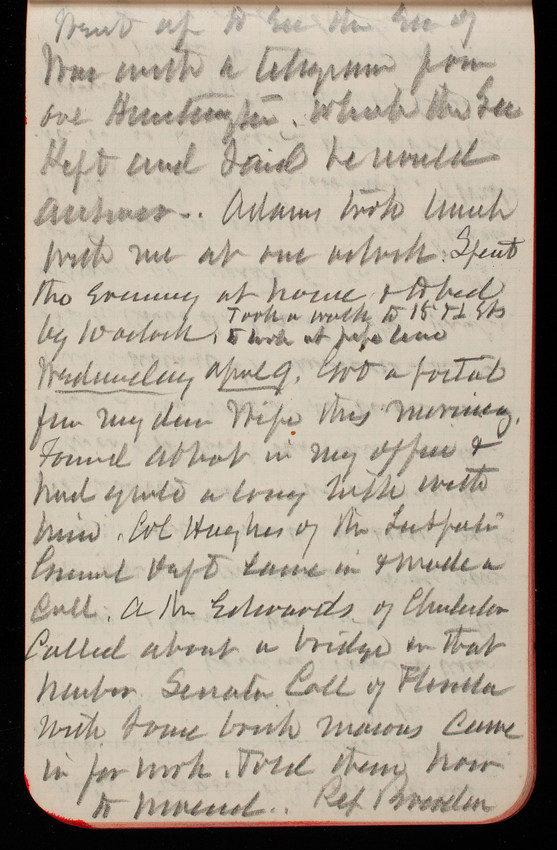 Went up to see the Sec of
War with a telegram from
one Huntington. Which the Sec
Kept and said he would
answer.. Adams took lunch
with me at one oclock. Spent
the evening at home & to bed
by 10 oclock. Took a walk to 18th & L Sts
to look at pipe line
Wednesday April 9. Got a postal
from my dear Wife this morning.
Found Abbot in my office &
had quite a long talk with
him. Col Hughes of the Inspector
General Dept came in & made a
call. A Mr Edwards of Charleston
Called about a bridge in that
harbor. Senator Call of Florida
with some brick masons came
in for work. Told them how
to proceed.. Rep